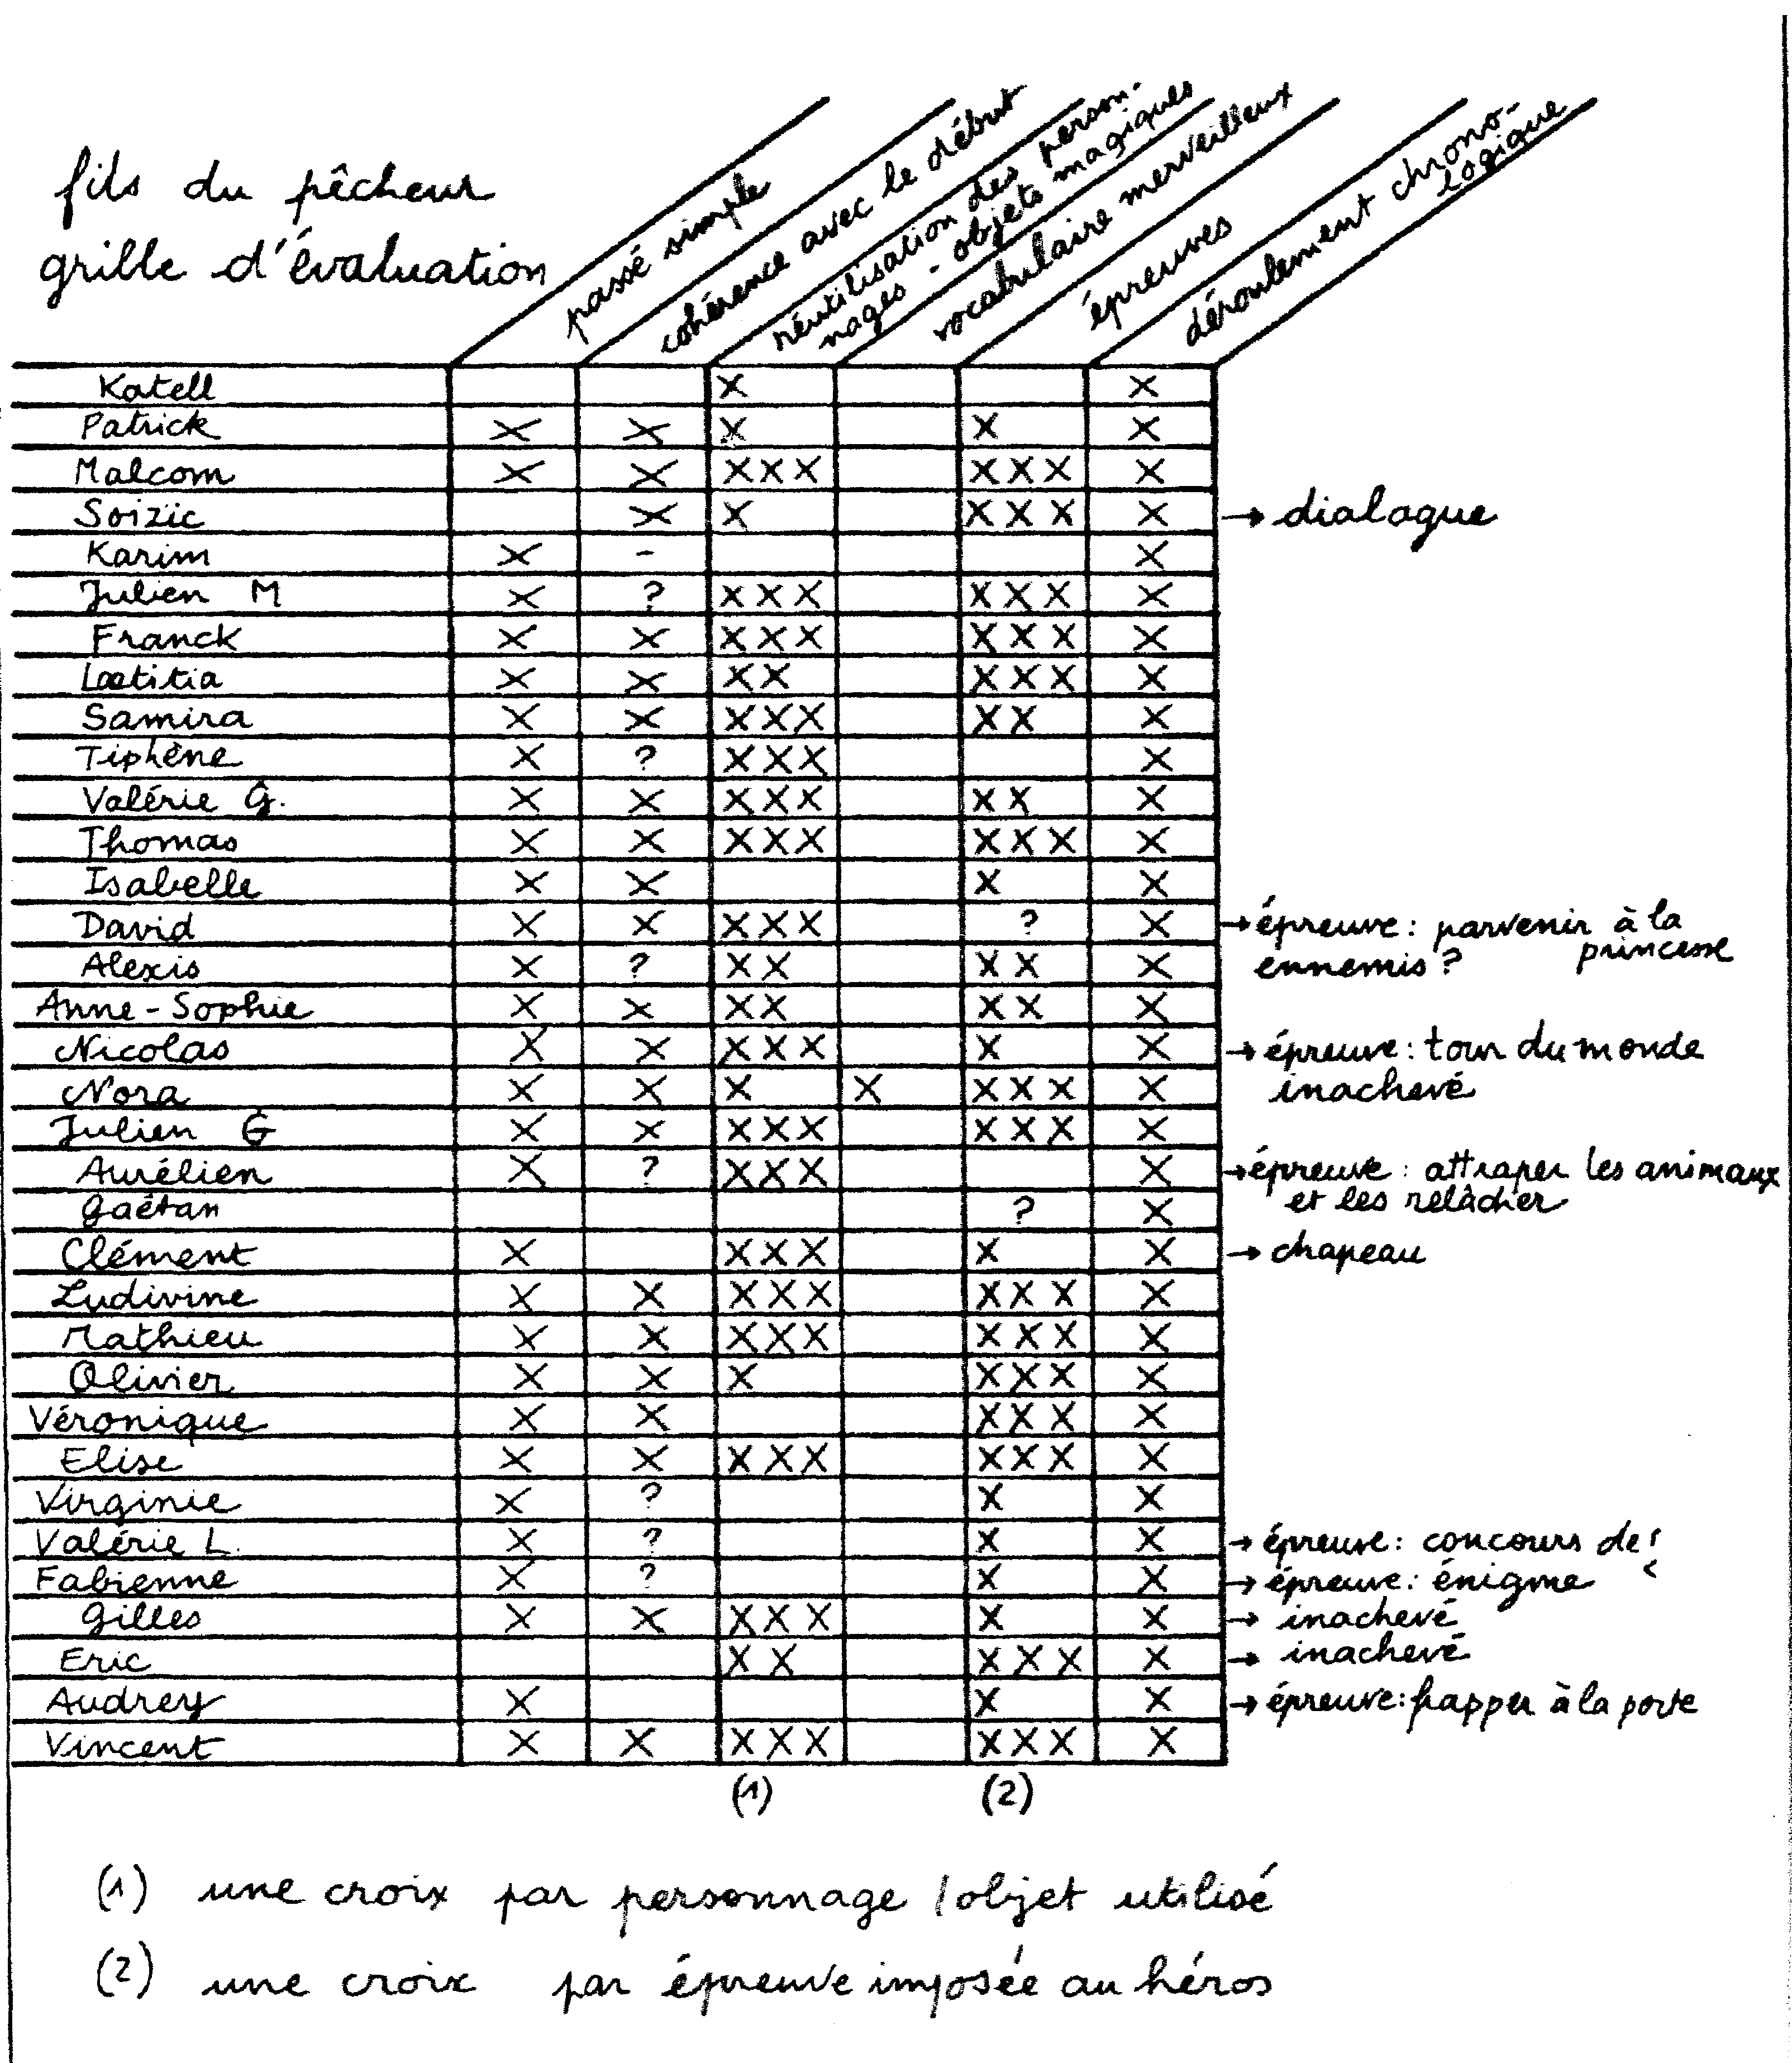 fils du pêcheur
grille d'évaluation
passé simple
cohérence avec le début
réutilisation des person-
nages - objets magiques
vocabulaire merveilleux
épreuves
déroulement chrono-
logique
Katell X X
Patrick X X X X X
Malcom X X XXX XXX X
Soizic X X XXX X → dialogue
Karim X - X
Julien M X ? XXX XXX X
Franck X X XXX XXX X
Lætitia X X XX XXX X
Samira X X XXX XX X
Tiphène X ? XXX X
Valérie G. X X XXX XX X
Thomas X X XXX XXX X
Isabelle X X X X
David X X XXX ? X → épreuve : parvenir à la
princesse
Alexis X ? XX XX X ennemis ?
Anne-Sophie X X XX XX X
Nicolas X X XXX X X → épreuve : tour du monde
Nora X X X X XXX X inachevé
Julien G X X XXX XXX X
Aurélien X ? XXX X → épreuve : attraper les animaux
et les relâcher
Gaëtan ? X
Clément X XXX X X → chapeau
Ludivine X X XXX XXX X
Mathieu X X XXX XXX X
Olivier X X X XXX X
Véronique X X XXX X
Elise X X XXX XXX X
Virginie X ? X X
Valérie L. X ? X X → épreuve : concours de
Fabienne X ? X X → épreuve : énigme
Gilles X X XXX X X → inachevé
Eric XX XXX X → inachevé
Audrey X X X → épreuve : frapper à la porte
Vincent X X XXX XXX X
(1) (2)
(1) une croix par personnage / objet utilisé
(2) une croix par épreuve imposée au héros